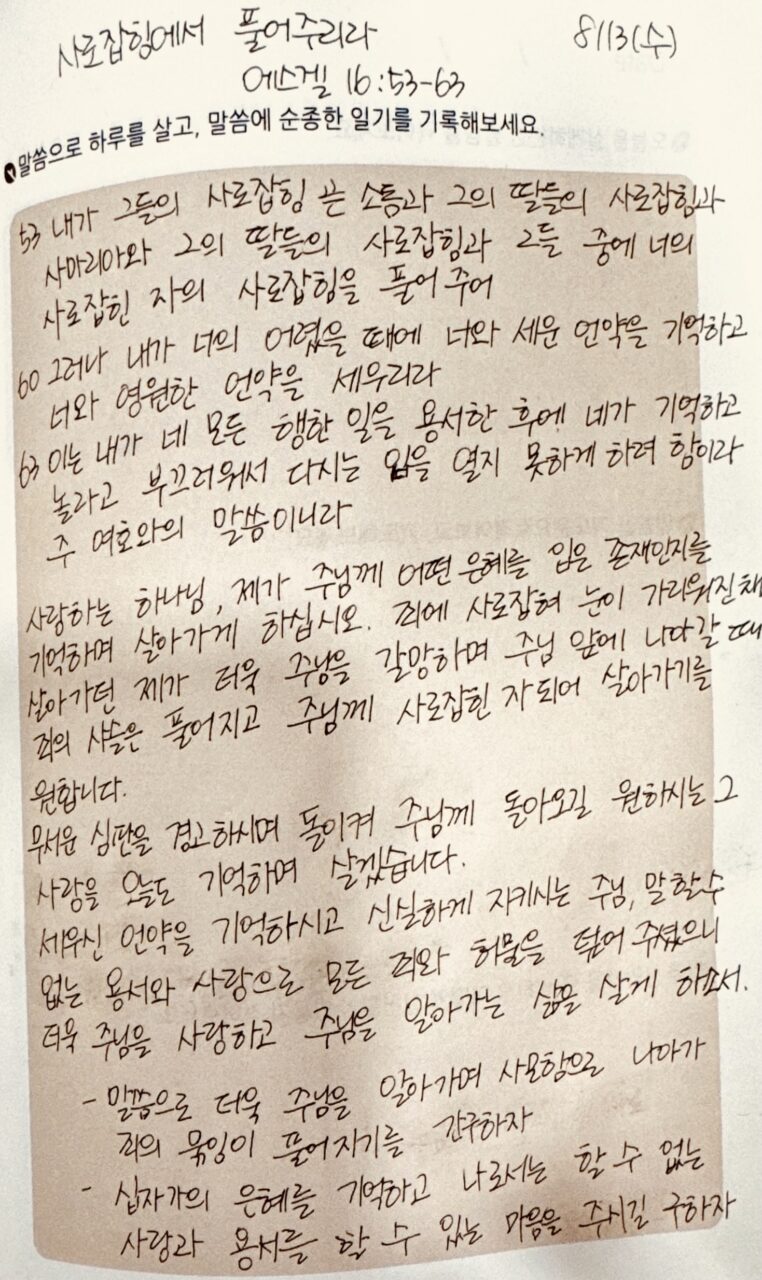 사로잡힘에서 풀어주리라 8/13(수)
에스겔 16:53-63
말씀으로 하루를 살고, 말씀에 순종한 일기를 기록해보세요.
53 내가 그들의 사로잡힘 곧 소돔과 그의 딸들의 사로잡힘과
사마리아와 그의 딸들의 사로잡힘과 그들 중에 너의
사로잡힌 자의 사로잡힘을 풀어 주어
60 그러나 내가 너의 어렸을 때에 너와 세운 언약을 기억하고
너와 영원한 언약을 세우리라
63 이는 내가 네 모든 행한 일을 용서한 후에 네가 기억하고
놀라고 부끄러워서 다시는 입을 열지 못하게 하려 함이라
주 여호와의 말씀이니라
사랑하는 하나님, 제가 주님께 어떤 은혜를 입은 존재인지를
기억하며 살아가게 하십시오. 죄에 사로잡혀 눈이 가리워진채
살아가던 제가 더욱 주님을 갈망하며 주님 앞에 나아갈 때
죄의 사슬은 풀어지고 주님께 사로잡힌 자 되어 살아가기를
원합니다.
무서운 심판을 경고하시며 돌이켜 주님께 돌아오길 원하시는 그
사랑을 오늘도 기억하며 살겠습니다.
세우신 언약을 기억하시고 신실하게 지키시는 주님, 말할수
없는 용서와 사랑으로 모든 죄와 허물을 덮어 주셨으니
더욱 주님을 사랑하고 주님을 알아가는 삶을 살게 하소서.
- 말씀으로 더욱 주님을 알아가며 사모함으로 나아가
죄의 묶임이 풀어지기를 간구하자
- 십자가의 은혜를 기억하고 나로서는 할 수 없는
사랑과 용서를 할 수 있는 마음을 주시길 구하자